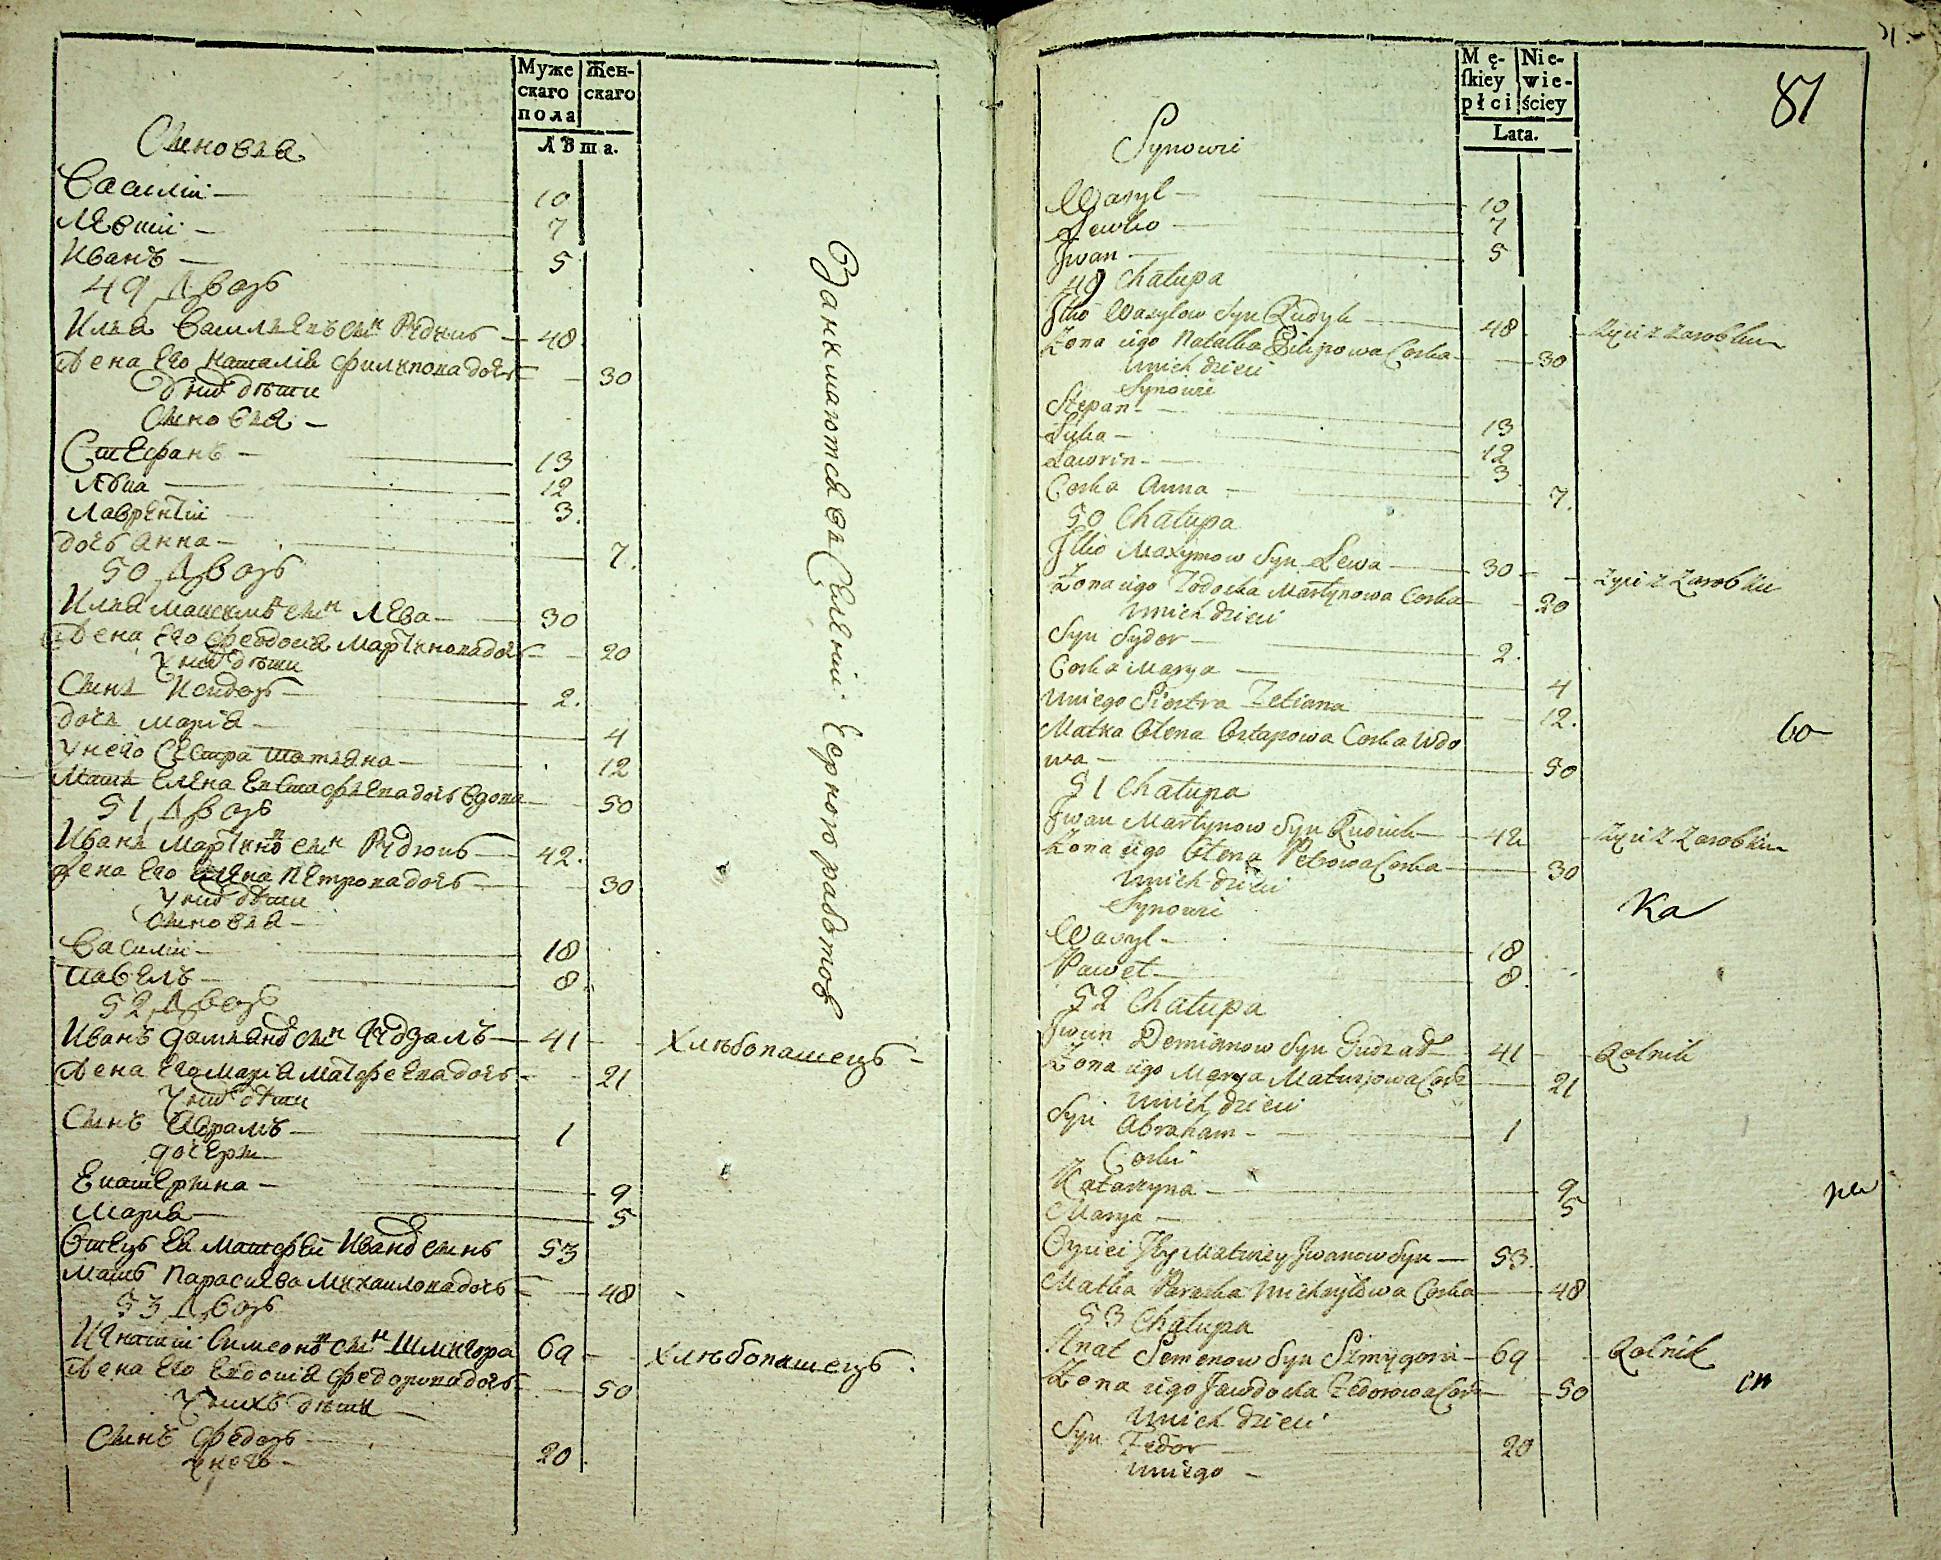 Муже
скаго
пола
Жен-
скаго
лѣта.
Синовья
Василій — 10
Левтій — 7
Иванъ — 5
49 Дворъ
Илья Васильевъ сын Рудикъ — 48
Жена его Наталія Филипова дочь — 30
У них дѣти
Синовья —
Стефанъ — 13
Лука — 12
Лаврентій 3.
дочь Анна — 7.
50 Дворъ
Илья Максимов сын Лева — 30
Жена его Феодосія Мартинова дочь — 20
У них дѣти
Синъ Исидоръ — 2.
дочь Марія — 4
У него Сестра Татіяна — 12
Мать Елена Евстафьева дочь вдова — 50
51 Дворъ
Иванъ Мартинов сын Рудюкъ — 42.
Жена его Елена Петрова дочь — 30
У них дѣти
Синовья —
Василій — 18
Павелъ — 8.
52 Дворъ
Иванъ Дамьянов сын Гудзалъ — 41 — хлѣбопашецъ —
Жена его Марія Матфеева дочь — 21
У них дѣти
Синъ Абрамъ — 1
дочери
Екатерина — 9
Марія — 5
Отецъ Ея Матфей Иванов синъ 53
Мать Парасква Михаилова дочь — 48
53 Дворъ
Игнатій Симеонов сын Шмигора 69 — хлѣбопашецъ.
Жена его Евдокія Федорова дочь — 50
У нихъ дѣти —
Синъ Федоръ — 20
У него —
Занимаются въ Селеніи Черною работою
Mę-
skiey
płci
Nie-
wie-
ściey
Lata.
87
Synowie
Wasyl — 10
Lewko — 7
Jwan — 5
49 Chałupa
Jlko Wasylow Syn Rudyk — 48 — żyie z zarobku
Zona iego Natalka Pilipowa Corka — 30
Unich dzieci
Synowie
Stepan — 13
Łuka — 12
Ławrin — 3
Corka Anna — 7.
50 Chałupa
Jlko Maxymow Syn Lewa — 30 — żyie z zarobku
Zona iego Todoska Martynowa Corka — 20
Unich dzieci
Syn Sydor — 2.
Corka Marya — 4
Uniego Siestra Tetiana 12.
Matka Ołena Ostapowa Corka Wdo
wa — 50
51 Chałupa
Jwan Martynow Syn Rudiuk — 42 żyie z zarobku
Zona iego Ołena Petrowa Corka — 30
Unich dzieci
Synowie
Ka
Wasyl — 18
Paweł — 8.
52 Chałupa
Jwan Demianow Syn Gudzał — 41 — Rolnik
Zona iego Marya Matwijowa Cork — 21
Unich dzieci
Syn Abraham — 1
Corki
Katarzyna — 9
Marya — 5
Oyciec Jey Matwiey Jwanow Syn — 53.
Matka Paraska Michayłowa Corka — 48
53 Chałupa
Hnat Semenow Syn Szmygora — 69 Rolnik
Zona iego Jawdocka Fedorowa Cork — 50
Unich dzieci
Syn Fedor — 20
Uniego —